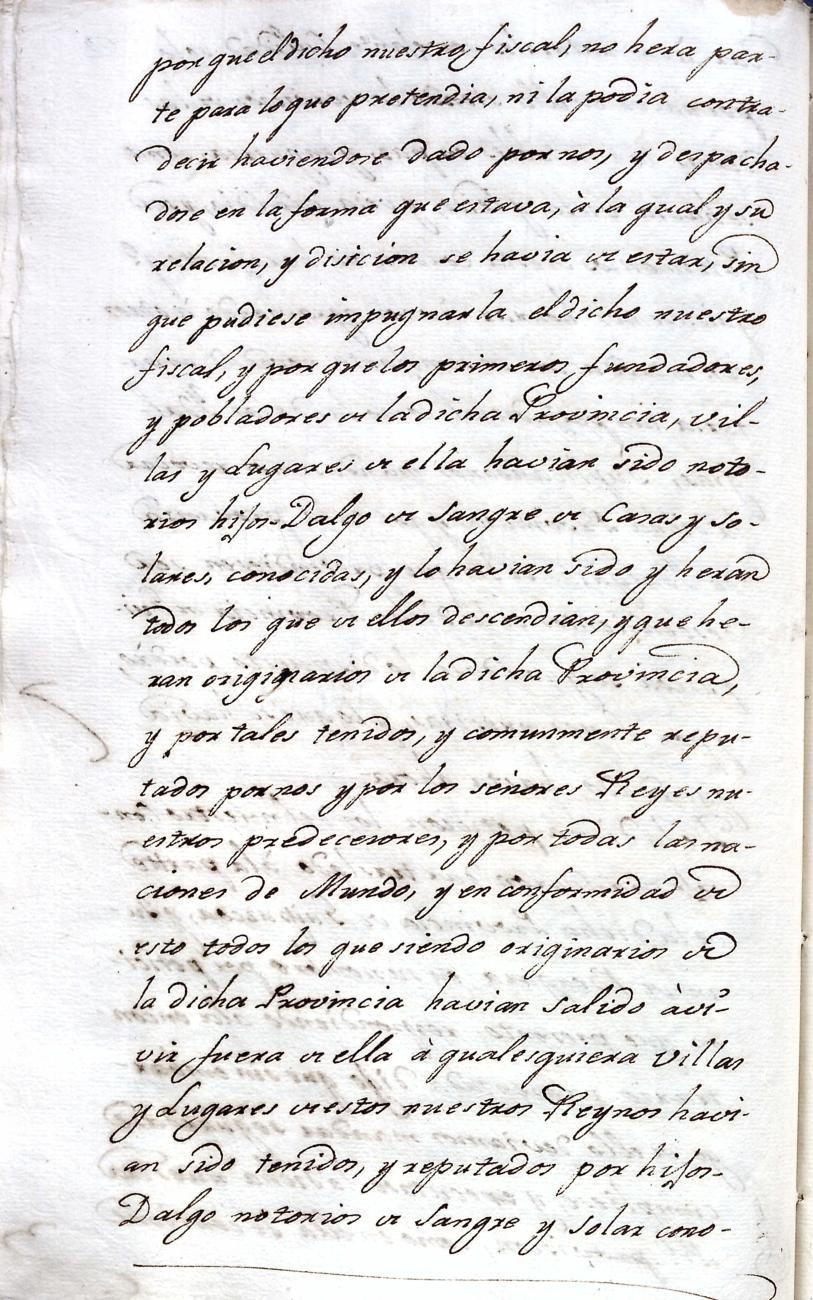 por que el dicho nuestro fiscal, no hera par-
te para lo que pretendia, ni la podia contra-
decir haviendose dado por nos, y despacha-
dose en la forma que estava, à la qual y su
relacion, y disicion se havia de estar, sin
que pudiese impugnarla el dicho nuestro
fiscal, y por que los primeros fundadores,
y pobladores de la dicha Provincia, vil-
las y Lugares de ella havian sido noto-
rios hijos-Dalgo de sangre de Casas y so-
lares, conocidas, y lo havian sido y heran
todos los que de ellos descendian, y que he-
ran originarios de la dicha Provincia,
y por tales tenidos, y comunmente repu-
tados por nos y por los señores Reyes nu-
estros predecesores, y por todas las na-
ciones de Mundo, y en conformidad de
esto todos los que siendo originarios de
la dicha Provincia havian salido à vi-
vir fuera de ella à qualesquiera villas
y Lugares de estos nuestros Reynos havi-
an sido tenidos, y reputados por hijos-
Dalgo notorios de sangre y solar cono-